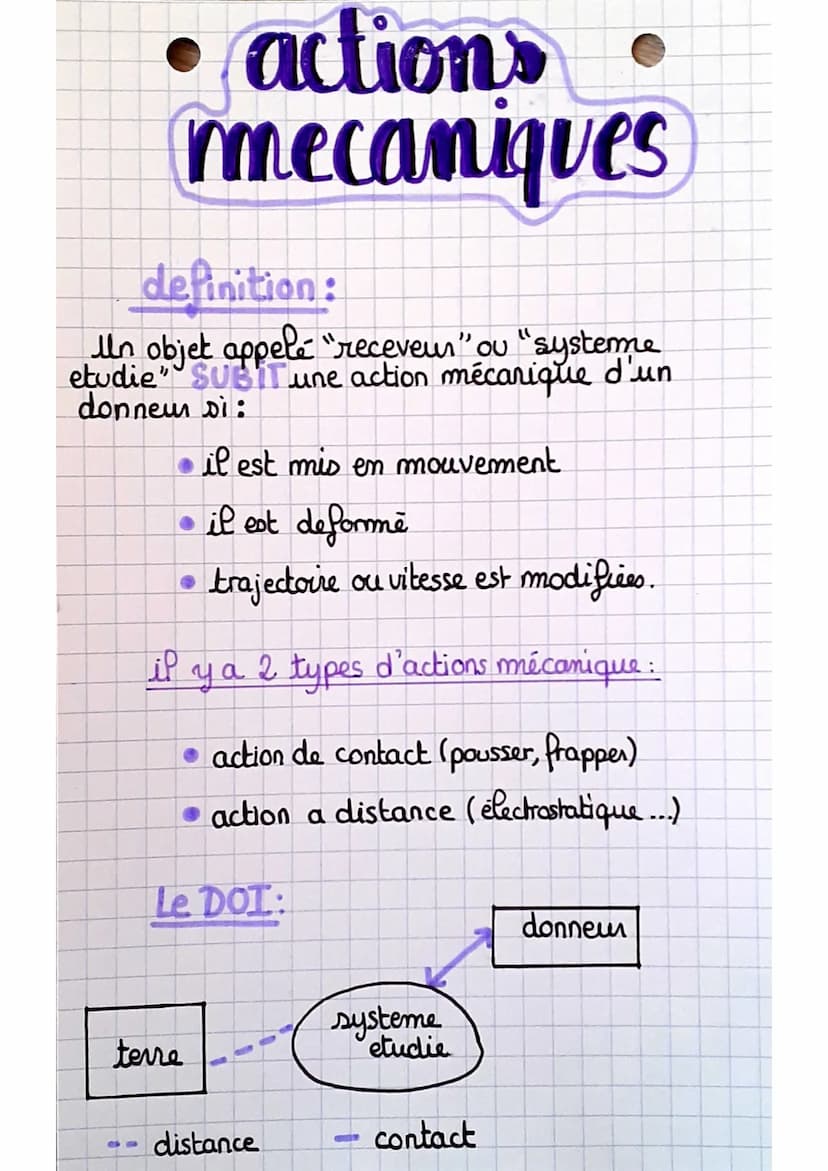 actions
mecaniques
definition :
Un objet appelé "receveur" ou "systeme
etudie" SUBIT une action mécanique d'un
donneur si :
• il est mis en mouvement
• il est deformé
• trajectoire ou vitesse est modifiées.
il y a 2 types d'actions mécanique :
• action de contact (pousser, frapper)
• action a distance (électrostatique ...)
Le DOI :
donneur
systeme
etudie
terre
-- distance
- contact